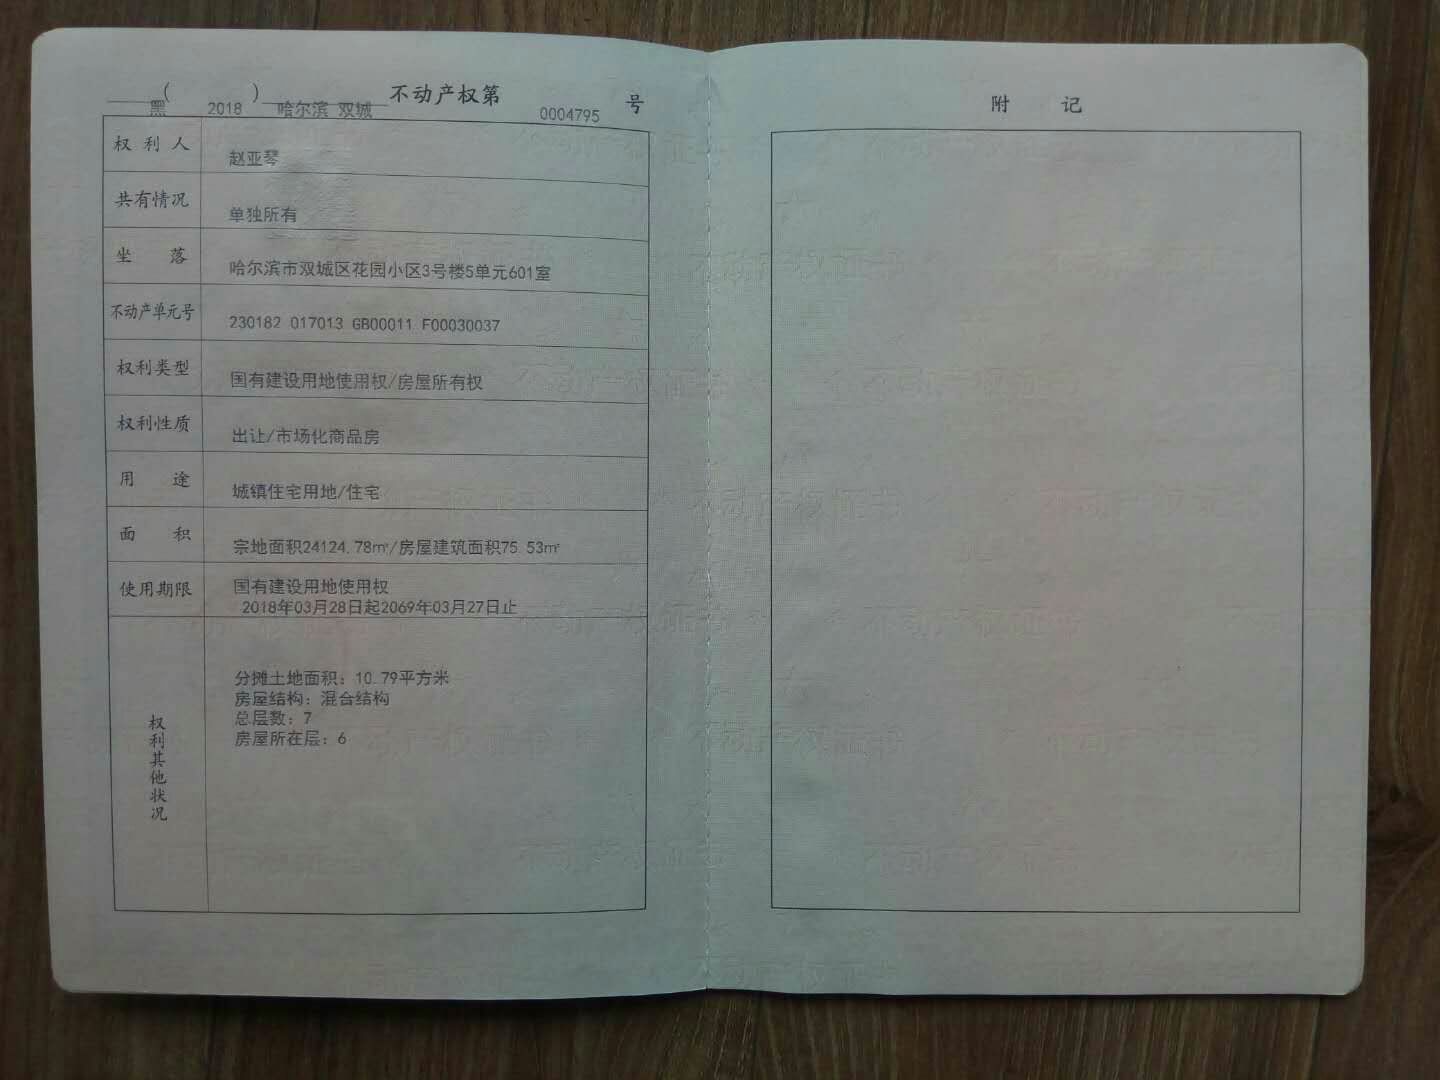 黑（2018）哈尔滨 双城不动产权第0004795号
权利人 赵亚琴
共有情况 单独所有
坐落 哈尔滨市双城区花园小区3号楼5单元601室
不动产单元号 230182 017013 GB00011 F00030037
权利类型 国有建设用地使用权/房屋所有权
权利性质 出让/市场化商品房
用途 城镇住宅用地/住宅
面积 宗地面积24124.78㎡/房屋建筑面积75.53㎡
使用期限 国有建设用地使用权
2018年03月28日起2069年03月27日止
权利其他状况
分摊土地面积：10.79平方米
房屋结构：混合结构
总层数：7
房屋所在层：6
附记